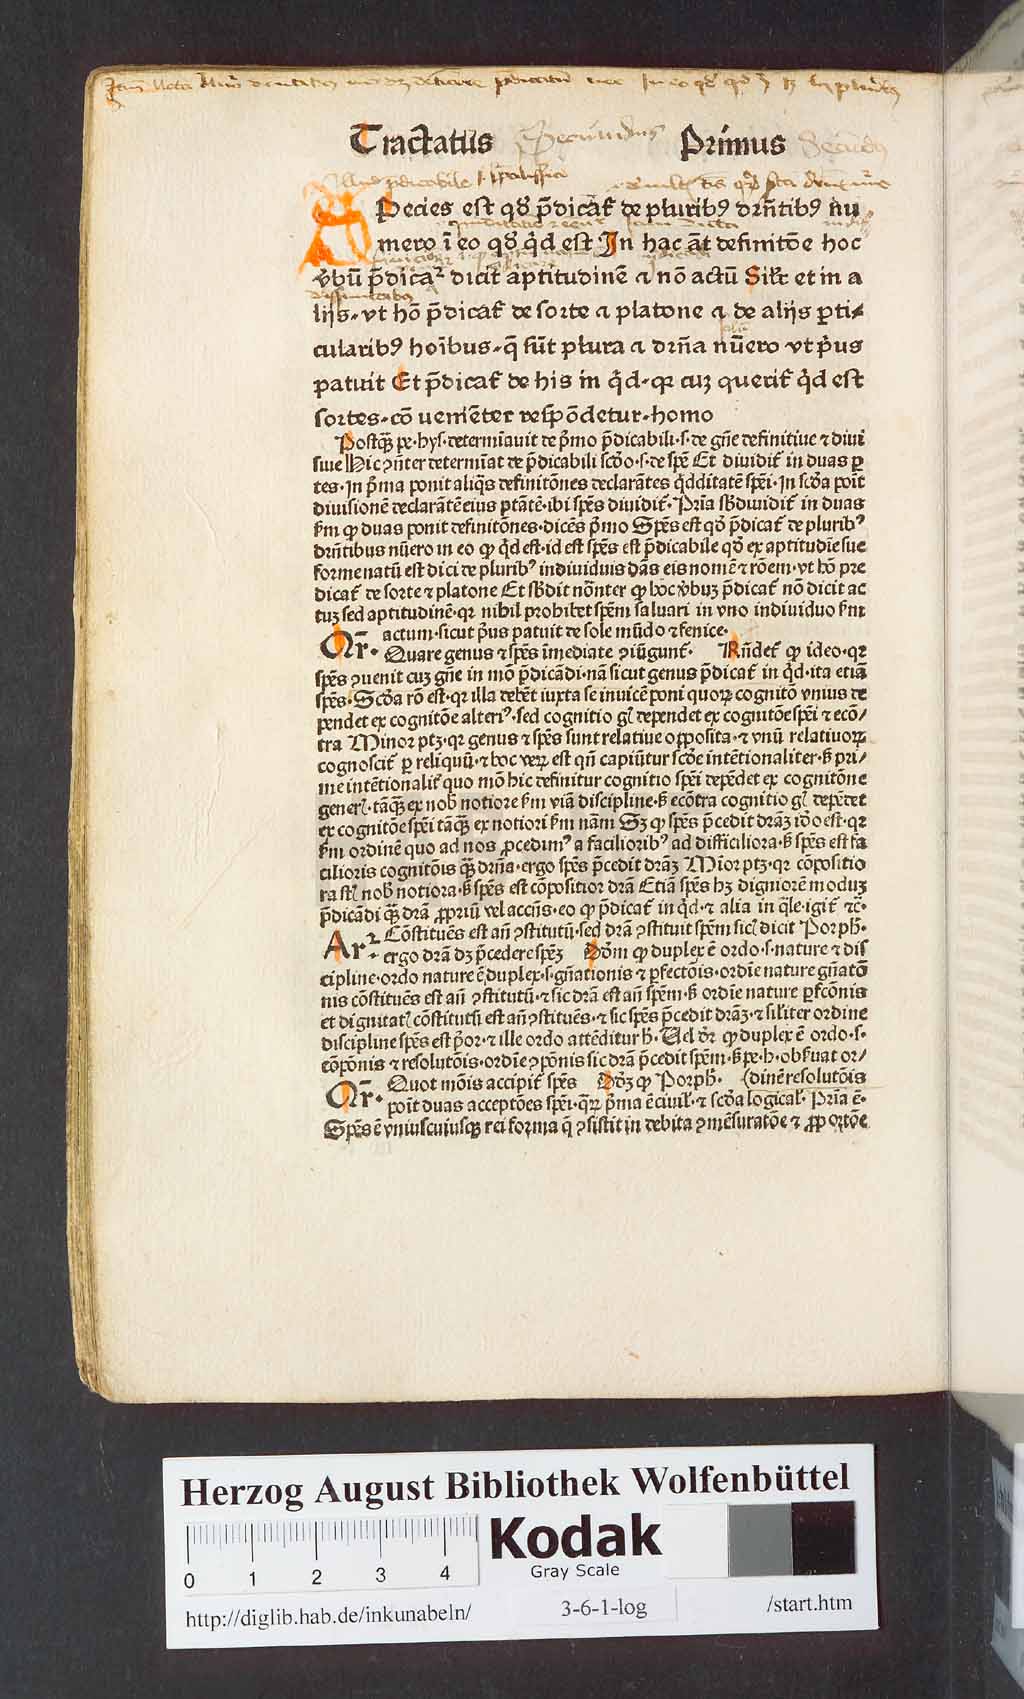 Tractatus Secundus Primus
Pecies est qď p̄dicat̉ de pluribꝰ dr̄ntibꝰ nu
mero ī eo qď qͥd est In hac āt definitōe hoc
v̓bū p̄dicaꝛ̉ dicit aptitudinē ⁊ nō actū Sil̓r et in a
lijs. vt hō p̄dicat̉ de sorte ⁊ platone ⁊ de alijs ꝑti⸗
cularibꝰ hoībus. q̄ sūt pl̓ura ⁊ dr̄ña nūero vt pͥus
patuit Et p̄dicat̉ de his in qͥd. qꝛ cuꝫ querit̉ qͥd est
sortes. cōuenīeter respōdetur. homo
Postqꝫ pe. hys. determīauit de pͥmo p̄dicabili. s. de gn̄e definitiue ⁊ diui
siue Hic ꝯn̄ter determīat de p̄dicabili sc̄do. s. de spē Et diuidit̉ in duas ꝑ
tes. In pͥma ponit aliqͣs definitōnes declarātes qͥdditatē spēi. In sc̄da poīt
diuisionē declarātē eius ꝑtātē. ibi spēs diuidit̉. Prīa sb̓diuidit̉ in duas
ẜm ꝙ duas ponit definitōnes. dicēs pͥmo Spēs est qď p̄dicat̉ de pluribꝰ
dr̄ntibus nūero in eo ꝙ qͥd est. id est spēs est p̄dicabile qď ex aptitudīe sue
forme natū est dici de pluribꝰ indiuiduis dās eis nomē ⁊ rōem. vt hō pre
dicat̉ de sorte ⁊ platone Et sb̓dit nōnter ꝙ hoc v̓buꝫ p̄dicat̉ nō dicit ac
tuꝫ sed aptitudinē. qꝛ nihil prohibet spēm saluari in vno indiuiduo ẜm
actum. sicut pͥus patuit de sole mūdo ⁊ fenice.
Qr̄. Quare genus ⁊ spēs īmediate ꝯiūgunt̉. Rn̄det̉ ꝙ ideo. qꝛ
spēs ꝯuenit cuꝫ gn̄e in mō p̄dicādi. nā sicut genus p̄dicat̉ in qͥd. ita etiā
spēs. Sc̄da rō est. qꝛ illa debēt iuxta se inuicē poni quoꝝ cognitō vnius de
pendet ex cognitōe alteriꝰ. sed cognitio gn̄is dependet ex cognitōe spēi ⁊ ecō⸗
tra Minor ptꝫ. qꝛ genus ⁊ spēs sunt relatiue opposita. ⁊ vnū relatiuoꝝ
cognoscit̉ ꝑ reliquū. ⁊ hoc veꝝ est qn̄ capiūtur sc̄de intētionaliter. ẜ pri⸗
me intētionalit̉ quo mō hic definitur cognitio spēi depēdet ex cognitōne
generis. tāqꝫ ex nob̓ notiore ẜm viā discipline. ẜ ecōtra cognitio gn̄is depēdet
ex cognitōe spēi tāqꝫ ex notiori ẜm nām Sꝫ ꝙ spēs p̄cedit dr̄aꝫ iďo est. qꝛ
ẜm ordinē quo ad nos ꝓcedimꝰ a facilioribꝰ ad difficiliora. ẜ spēs est fa
cilioris cognitōis qꝫ dr̄ña. ergo spēs p̄cedit dr̄aꝫ Mīor ptꝫ. qꝛ cōpositio
ra st̄ nob̓ notiora. ẜ spēs est cōpositior dr̄a Etiā spēs hꝫ digniorē moduꝫ
p̄dicādi qꝫ dr̄a ꝓpriū vel accn̄s. eo ꝙ p̄dicat̉ in qͥd. ⁊ alia in qͣle. igit̉ ⁊c̄.
Arꝛ. Cōstituēs est an̄ ꝯstitutū. sed dr̄a ꝯstituit spēm sicut dicit Porph̓.
ergo dr̄a dꝫ p̄cedere spēꝫ Dōm ꝙ duplex ē ordo. s. nature ⁊ dis
cipline. ordo nature ē duplex. s. gn̄ationis ⁊ ꝑfectōis. ordīe nature gn̄atō
nis cōstituēs est an̄ ꝯstitutū. ⁊ sic dr̄a est an̄ spēm. ẜ ordīe nature ꝑfcōnis
et dignitatis cōstitutū est an̄ ꝯstituēs. ⁊ sic spēs p̄cedit dr̄aꝫ. ⁊ sil̓iter ordine
discipline spēs est pͥor. ⁊ ille ordo attēditur h̓. Uel dr̄ ꝙ duplex ē ordo. s.
cōpōnis ⁊ resolutōis. ordīe ꝯpōnis sic dr̄a p̄cedit spēm. ẜ pe. h. obẜuat or⸗
Qr̄. Quot mōis accipit̉ spēs Dōꝫ ꝙ Porph̓. (dinē resolutōis
poīt duas acceptōes spēi. quaꝝ pͥma ē ciuil̓. ⁊ sc̄da logical̓. Prīa ē.
Spēs ē vniuscuiusqꝫ rei forma q̄ ꝯsistit in debita ꝯmēsuratōe ⁊ ꝓportōe
Herzog August Bibliothek Wolfenbüttel
0 1 2 3 4
Kodak
Gray Scale
http://diglib.hab.de/inkunabeln/ 3-6-1-log /start.htm